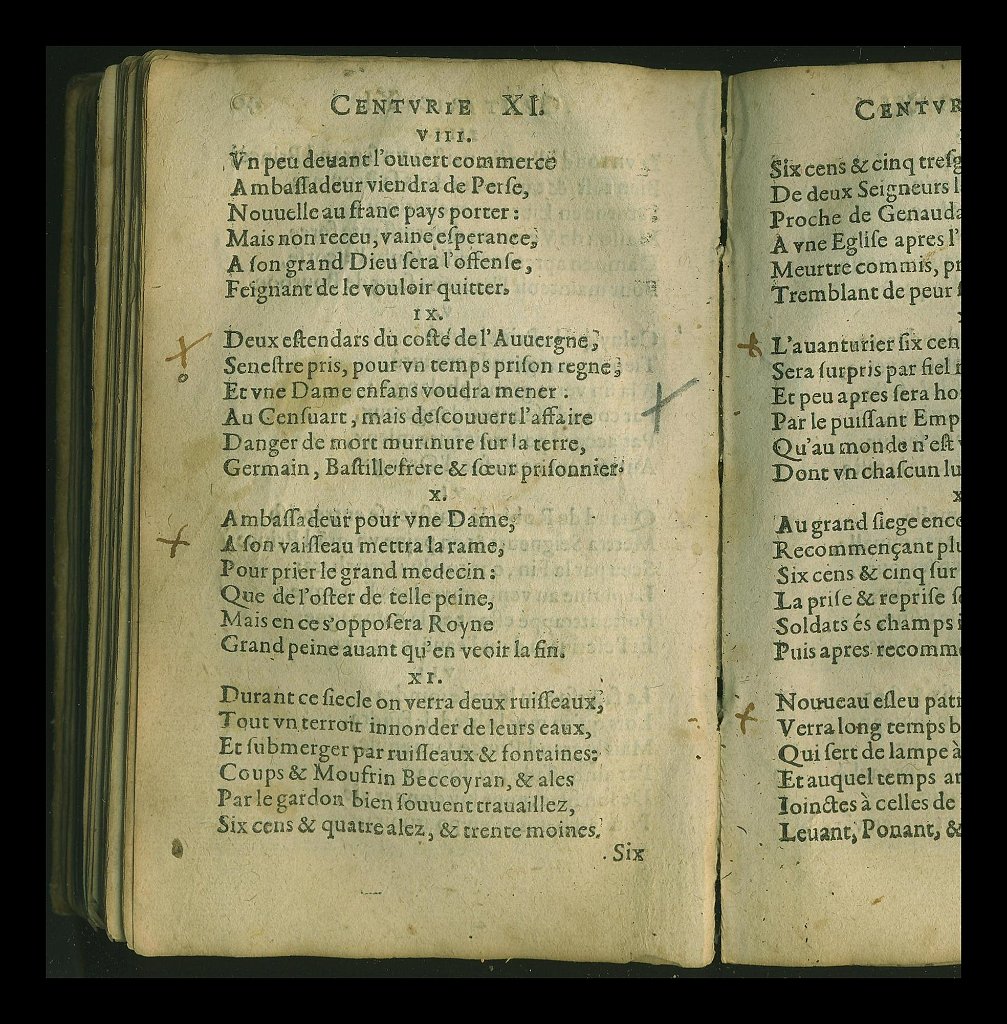 CENTVRIE XI.
VIII.
Vn peu deuant l'ouuert commerce
Ambaſſadeur viendra de Perſe,
Nouuelle au franc pays porter :
Mais non receu, vaine eſperance,
A ſon grand Dieu ſera l'offenſe,
Feignant de le vouloir quitter.
IX.
Deux eſtendars du coſté de l'Auuergne,
Seneſtre pris, pour vn temps priſon regne,
Et vne Dame enfans voudra mener :
Au Cenſuart, mais deſcouuert l'affaire
Danger de mort murmure ſur la terre,
Germain, Baſtille frere & ſœur priſonnier.
X.
Ambaſſadeur pour vne Dame,
A ſon vaiſſeau mettra la rame,
Pour prier le grand medecin :
Que de l'oſter de telle peine,
Mais en ce s'oppoſera Royne
Grand peine auant qu'en veoir la fin.
XI.
Durant ce ſiecle on verra deux ruiſſeaux,
Tout vn terroir innonder de leurs eaux,
Et ſubmerger par ruiſſeaux & fontaines:
Coups & Moufrin Beccoyran, & ales
Par le gardon bien ſouuent trauaillez,
Six cens & quatre alez, & trente moines.
Six
CENTVR
Six cens & cinq treſg
De deux Seigneurs l
Proche de Genauda
A vne Egliſe apres l'
Meurtre commis, pr
Tremblant de peur ſ
L'auanturier ſix cen
Sera ſurpris par fiel
Et peu apres ſera ho
Par le puiſſant Emp
Qu'au monde n'eſt
Dont vn chaſcun lu
X
Au grand ſiege enco
Recommençant plu
Six cens & cinq ſur
La priſe & repriſe ſ
Soldats és champs
Puis apres recomm
Nouueau eſleu patr
Verra long temps b
Qui ſert de lampe à
Et auquel temps ar
Ioinctes à celles de
Leuant, Ponant, &